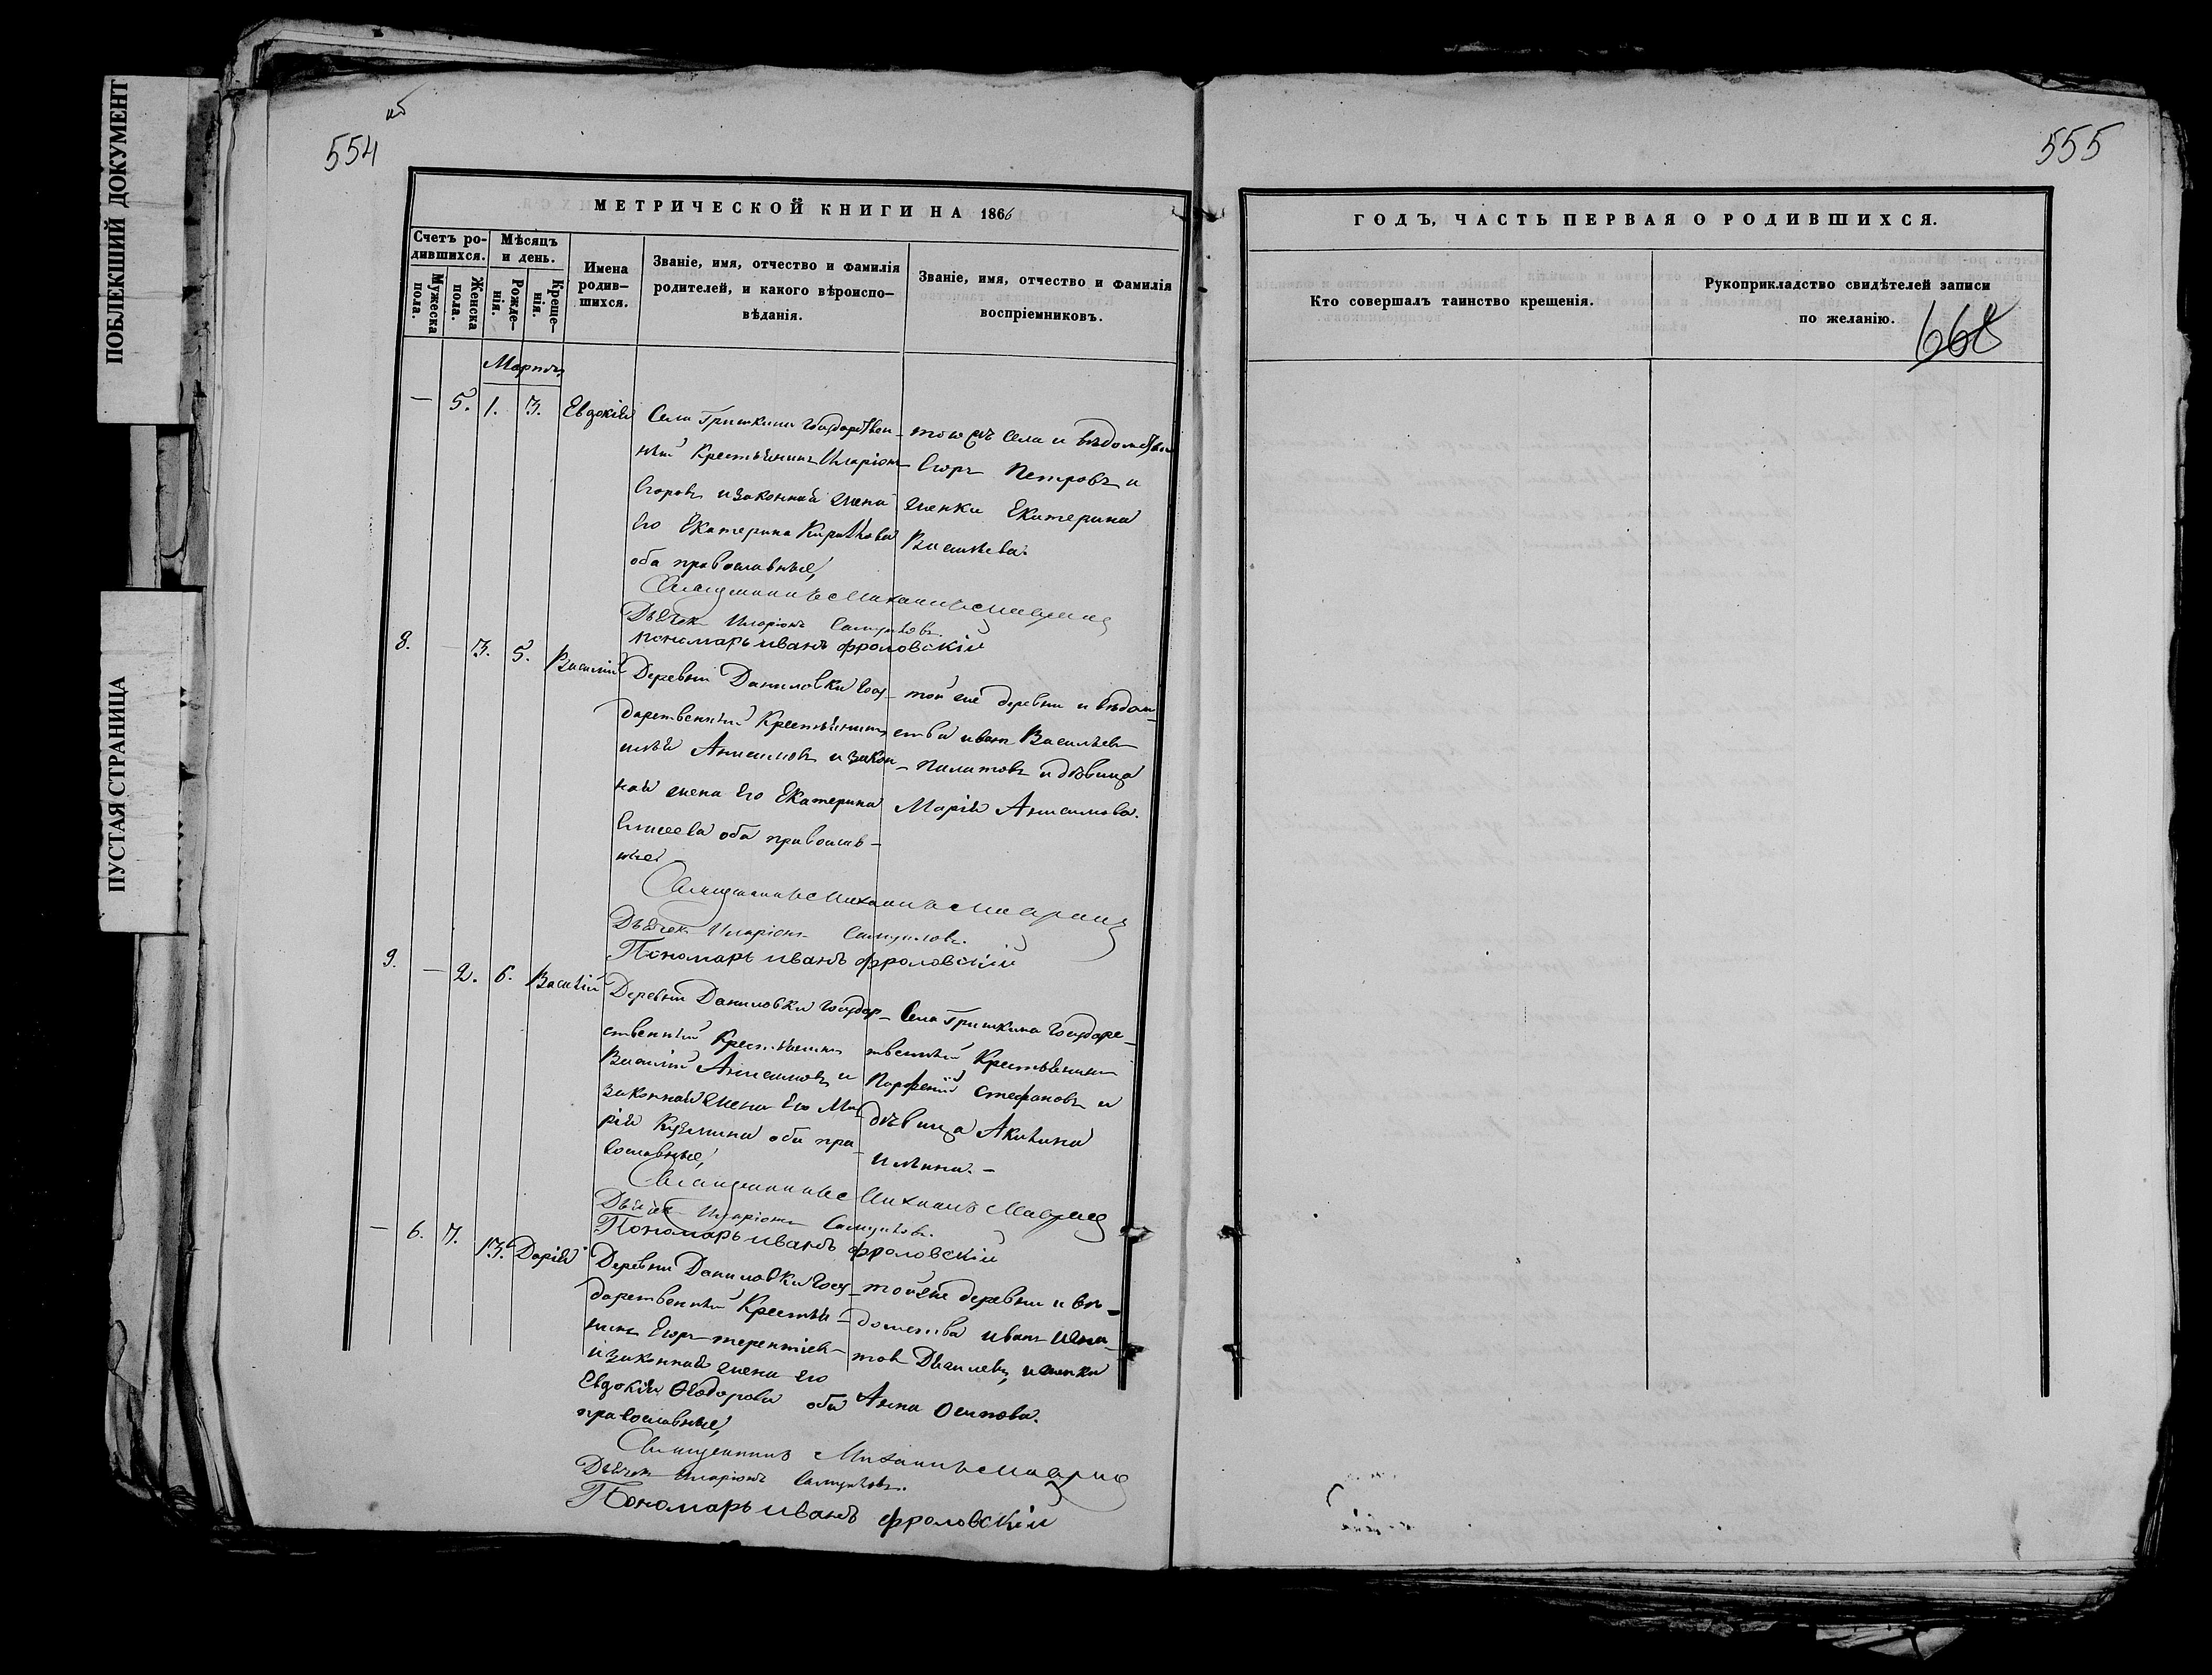 ПОБЛЕКШИЙ ДОКУМЕНТ
ПУСТАЯ СТРАНИЦА
554
об
МЕТРИЧЕСКОЙ КНИГИ НА 1866
Счетъ ро-
дившихся.
Мѣсяцъ
и день.
Мужеска
пола.
Женска
пола.
Рожде-
нія.
Креще-
нія.
Имена
родив-
шихся.
Званіе, имя, отчество и фамилія
родителей, и какого вѣроиспо-
вѣданія.
Званіе, имя, отчество и фамилія
воспріемниковъ.
Мартъ
— 5. 1. 3. Евдокія
Села Гришкина Государствен-
ный Крестьянинъ Иларіонъ
Егоровъ и законная жена
Его Екатерина Кирилова
оба православные,
тогожъ села и вѣдомства
Егоръ Петровъ и
женка Екатерина
Васильева.
Священникъ Михаилъ
Дьячекъ Иларіонъ Самуиловъ.
пономарь иванъ фроловскій
8. — 3. 5. Василій
Деревни Даниловки Госу-
дарственный Крестьянинъ
Анисимовъ и закон-
ная жена Его Екатерина
Елисеева оба православ-
ные
той же деревни и вѣдом-
ства иванъ Васильевъ
и дѣвица
Марія Анисимова.
Священникъ Михаилъ
Дьячекъ Иларіонъ Самуиловъ.
Пономарь иванъ фроловскій
9. — 2. 6. Василій
Деревни Даниловки Государ-
ственный Крестьянинъ
Василій Анисимовъ и
законная жена Его Ма-
рія Кузьмина оба пра-
вославные,
Села Гришкина Государс-
твенный Крестьянинъ
Парфеній Стефановъ и
дѣвица Акилина
Ильина. —
Священникъ Михаилъ
Дьячекъ Иларіонъ Самуиловъ.
Пономарь иванъ фроловскій
— 6. 7. 13. Дарія
Деревни Даниловки Госу-
дарственный Крестья-
нинъ Егоръ терентіевъ
и законная жена Его
Евдокія Ѳеодорова оба
православные,
той же деревни и вѣ-
домства иванъ Игна-
товъ и женка
Анна Осипова.
Священникъ Михаилъ
Дьячекъ Иларіонъ Самуиловъ.
Пономарь иванъ фроловскій
555
ГОДЪ, ЧАСТЬ ПЕРВАЯ О РОДИВШИХСЯ.
Кто совершалъ таинство крещенія.
Рукоприкладство свидѣтелей записи
по желанію.
668